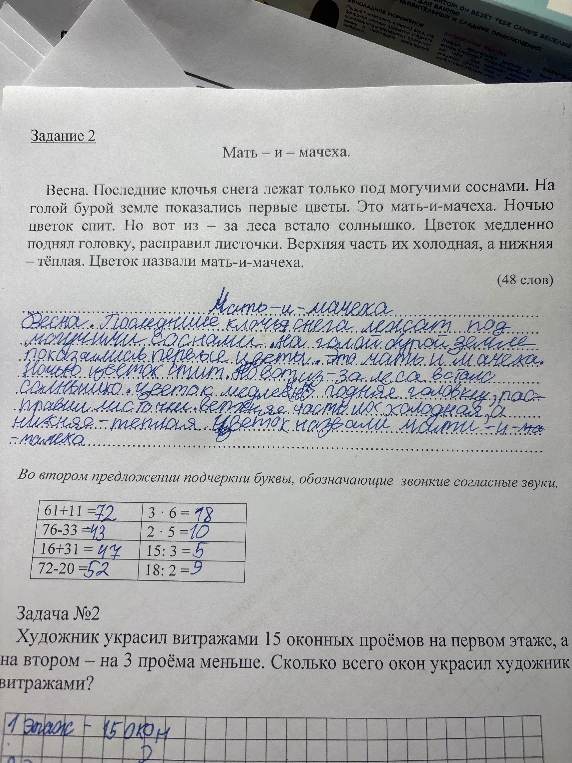 ВЕЗЕТ ТЕБЕ САМЫЕ ВЕСЕЛЫЕ
Задание 2
Мать – и – мачеха.
Весна. Последние клочья снега лежат только под могучими соснами. На
голой бурой земле показались первые цветы. Это мать-и-мачеха. Ночью
цветок спит. Но вот из – за леса встало солнышко. Цветок медленно
поднял головку, расправил листочки. Верхняя часть их холодная, а нижняя
– тёплая. Цветок назвали мать-и-мачеха.
(48 слов)
Мать-и-мачеха
Весна. Последние клочья снега лежат под
могучими соснами. На голой бурой земле
показались первые цветы. Это мать и мачека.
Ночью цветок спит. Но вот из-за леса встало
солнышко. цветок поднял головку, рас-
правил листочки. часть их холодная, а
нижняя - теплая. Цветок назвали -и-ма-
Во втором предложении подчеркни буквы, обозначающие звонкие согласные звуки.
61+11 =72 3 · 6 = 18
76-33 =43 2 · 5 = 10
16+31 = 47 15: 3 = 5
72-20 = 52 18: 2 = 9
Задача №2
Художник украсил витражами 15 оконных проёмов на первом этаже, а
на втором – на 3 проёма меньше. Сколько всего окон украсил художник
витражами?
1 этаж - 15 окон